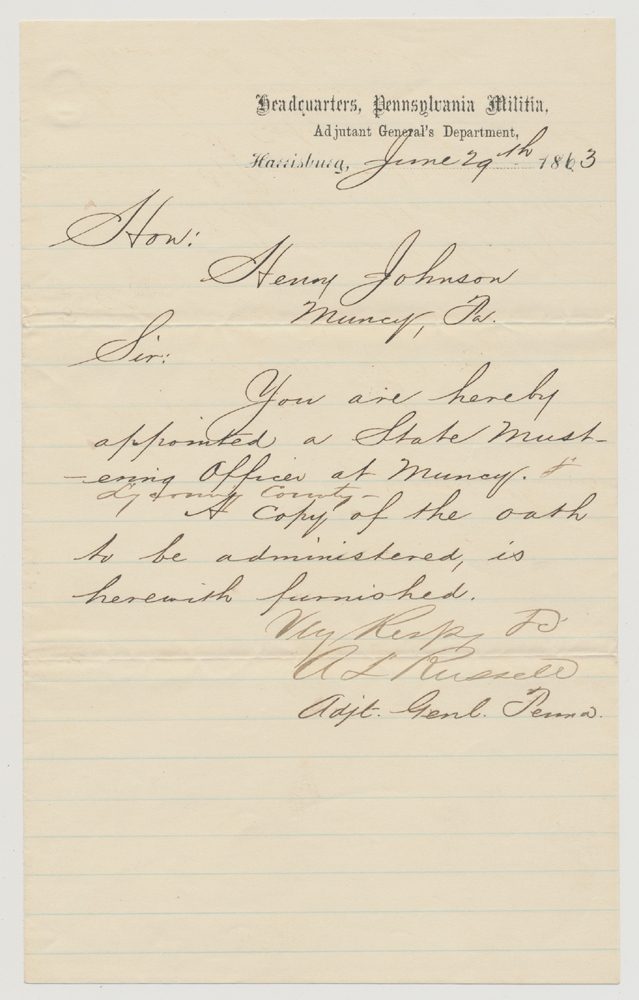 Headquarters, Pennsylvania Militia,
Adjutant General's Department,
Harrisburg, June 29th 1863
Hon:
Henry Johnson
Muncy, Pa.
Sir:
You are hereby
appointed a State Must-
-ering Officer at Muncy. &
Lycoming County-
A copy of the oath
to be administered, is
herewith furnished.
Vry Resply
A L Russell
Adjt. Genl. Penna.